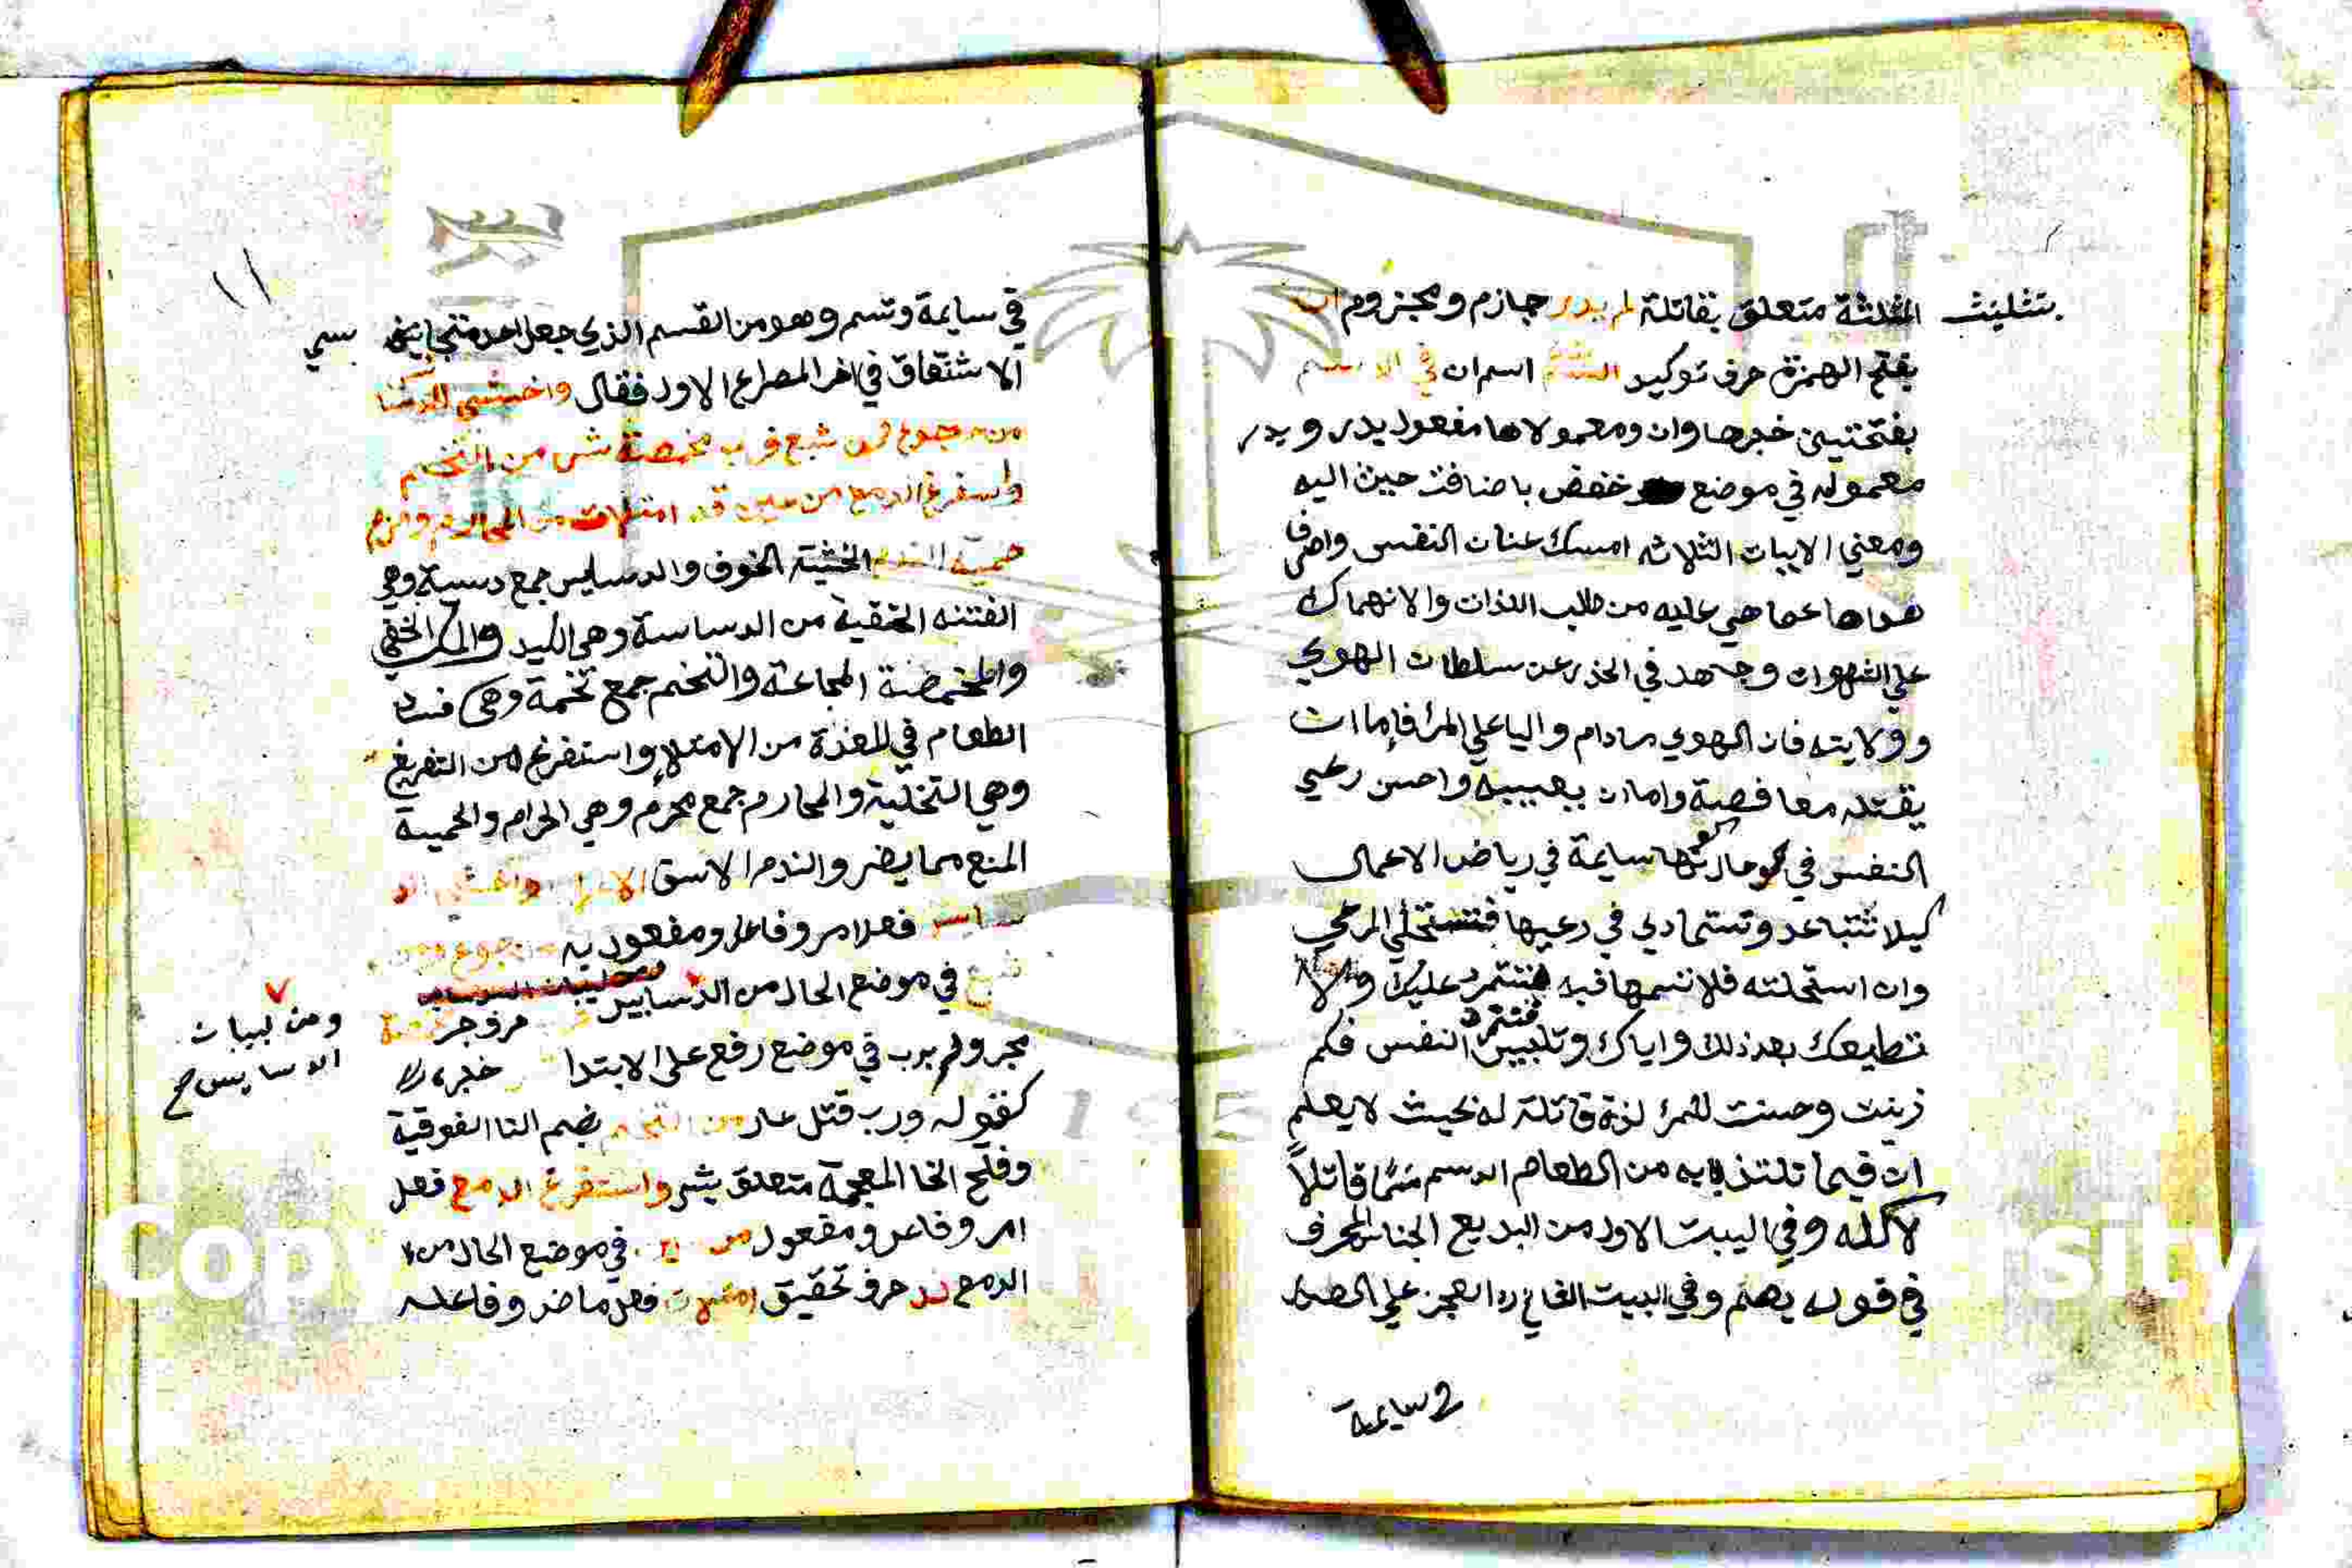 بتثليث المثلثة متعلق بقاتلة لم يدر جازم ومجزوم ان
بفتح الهمزة حرف توكيد السم اسم ان في الدسم
بفتحتين خبرها وان ومعمولاها مفعول يدر ويدر
معموله في موضع خفض باضافت حيث اليه
ومعني الابيات الثلاثه امسك عنان النفس واصرف
هواها عما هي عليه من طلب اللذات والانهماك
علي الشهوات وجتهد في الحذر عن سلطان الهوي
وولايته فان الهوي مادام واليا علي المرأ فإما ان
يقتله معافصة واما ان يعيبه واحسن رعي
النفس في سايمة في رياض الاعمال
كيلا تتباعد وتستمادي في رعيها فتستحلي المرعي
وان استحلته فلا تسمها فيه فتتمرد عليك ولا
تطيعك بعد ذلك واياك وتلبيس النفس فكم
زينت وحسنت للمرأ لذة قاتلة له بحيث لا يعلم
ان فيما تلتذ به من الطعام الدسم سمًا قاتلاً
لاكله وفي البيت الاول من البديع الجناس المحرف
في قوله يصم وفي البيت الثاني رد العجز علي الصد
سايمة
١١
في سايمة وتسم وهو من القسم الذي جعل احد متجانسي
الاشتقاق في اخر المصراع الاول فقال واخش الدسائس
من جوع ومن شبع فرب مخمصة شر من التخم
واستفرغ الدمع من عين قد امتلات من المحارم والزم
حمية الندم الخشية الخوف والدسايس جمع دسيسة وهي
الفتنه الخفية من الدساسة وهي الكيد والمكر الخفي
والمخمصة المجاعة والتخم جمع تخمة وهي فساد
الطعام في المعدة من الامتلاء واستفرغ امر من التفريغ
وهي التخلية والمحارم جمع محرم وهي الحرام والحمية
المنع مما يضر والندم الاسق الاعراب واخش الد
سايس فعل امر وفاعل ومفعول به من جوع ومن
شبع في موضع الحال من الدسايس
ومن لبيات الدسايس صح
حرف جر مخمصة
مجرور برب في موضع رفع علي الابتدا خبره
كقوله ورب قتل عار من التخم بضم التا الفوقية
وفتح الخا المعجمة متعلق بشر واستفرغ الدمع فعل
امر وفاعل ومفعول من عين في موضع الحال من
الدمع قد حرف تحقيق امتلات فعل ماض وفاعله